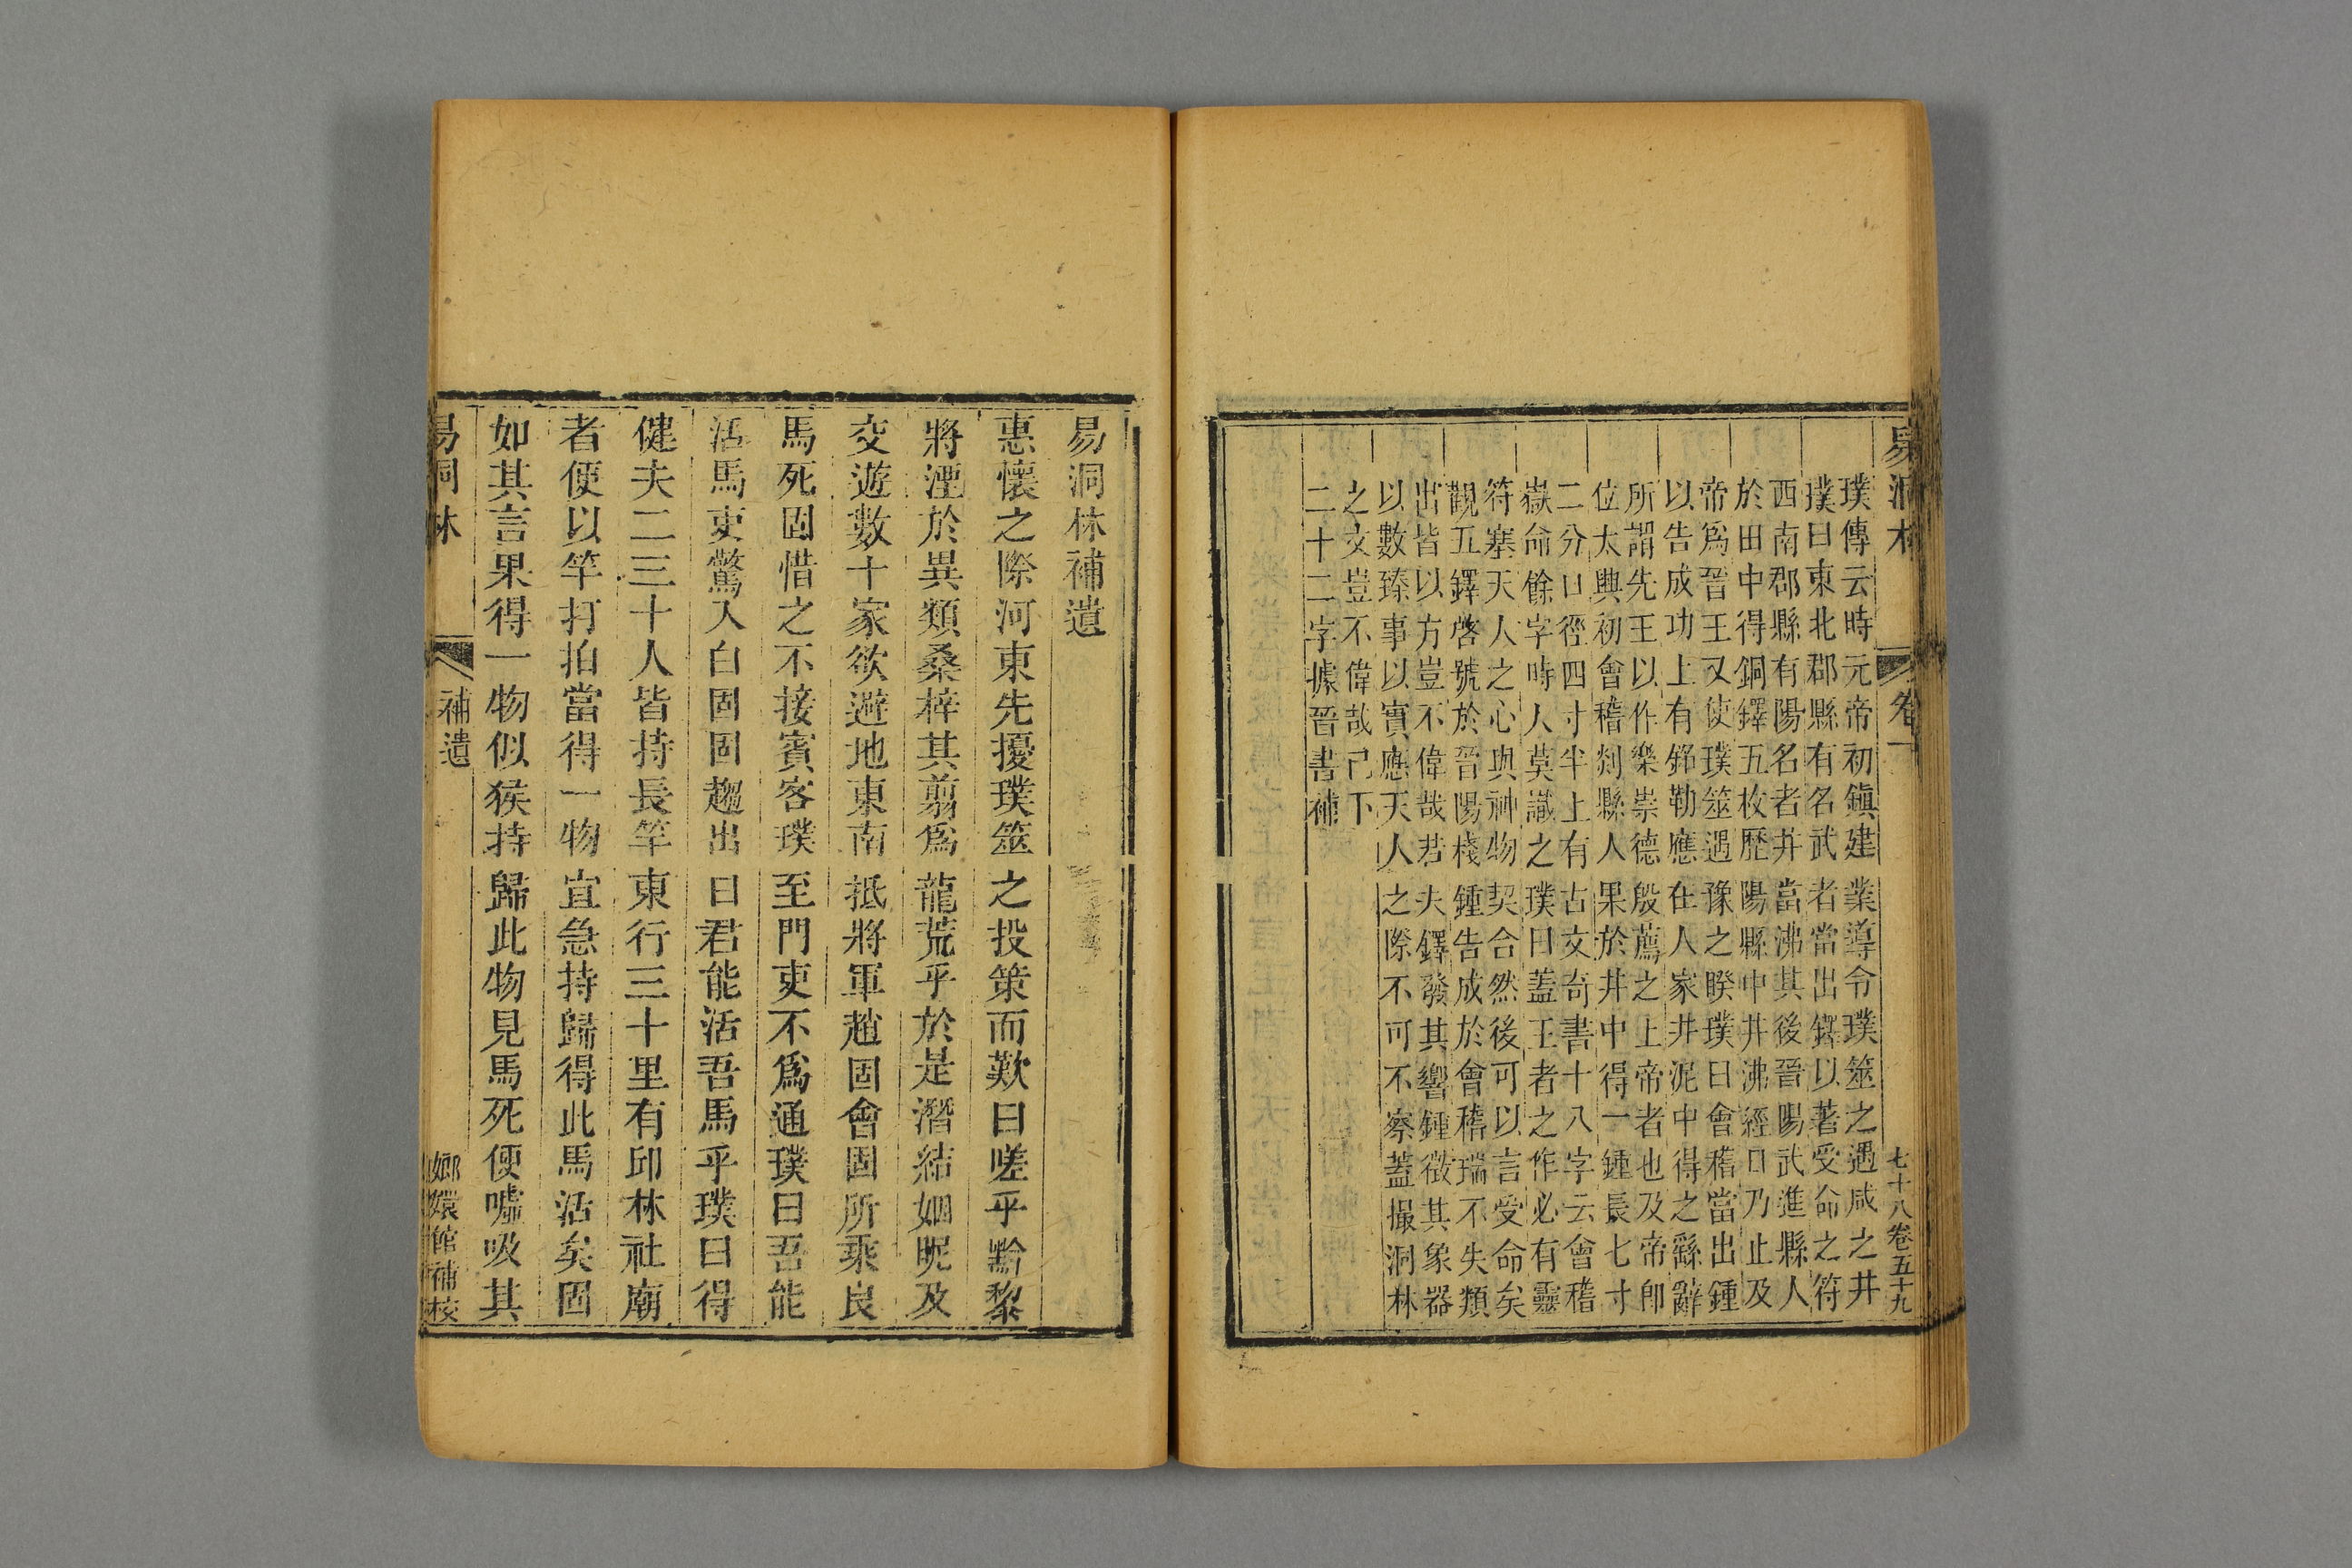 易洞林
卷下
七十八卷五十九
璞傳云時元帝初鎮建業導令璞筮之遇咸之井
璞曰東北郡縣有名武者當出鐸以著受命之符
西南郡縣有陽名者井當沸其後晉陽武進縣人
於田中得銅鐸五枚歷陽縣中井沸經日乃止及
帝爲晉王又使璞筮遇豫之睽璞曰會稽當出鍾
以告成功上有銘勒應在人家井泥中得之繇辭
所謂先王以作樂崇德殷薦之上帝者也及帝卽
位太興初會稽剡縣人果於井中得一鍾長七寸
二分口徑四寸半上有古文奇書十八字云會稽
嶽命餘字時人莫識之璞曰蓋王者之作必有靈
符塞天人之心與神物契合然後可以言受命矣
觀五鐸啓號於晉陽棧鍾告成於會稽瑞不失類
出皆以方豈不偉哉若夫鐸發其響鍾徵其象器
以數臻事以實應天人之際不可不察蓋撮洞林
之文豈不偉哉已下
二十二字據晉書補
易洞林補遺
惠懷之際河東先擾璞筮之投策而歎曰嗟乎黔黎
將湮於異類桑梓其翦爲龍荒乎於是潛結姻昵及
交遊數十家欲避地東南抵將軍趙固會固所乘良
馬死固惜之不接賓客璞至門吏不爲通璞曰吾能
活馬吏驚入白固固趨出曰君能活吾馬乎璞曰得
健夫二三十人皆持長竿東行三十里有邱林社廟
者便以竿打拍當得一物宜急持歸得此馬活矣固
如其言果得一物似猴持歸此物見馬死便噓吸其
易洞林
補遺
嫏嬛館補校